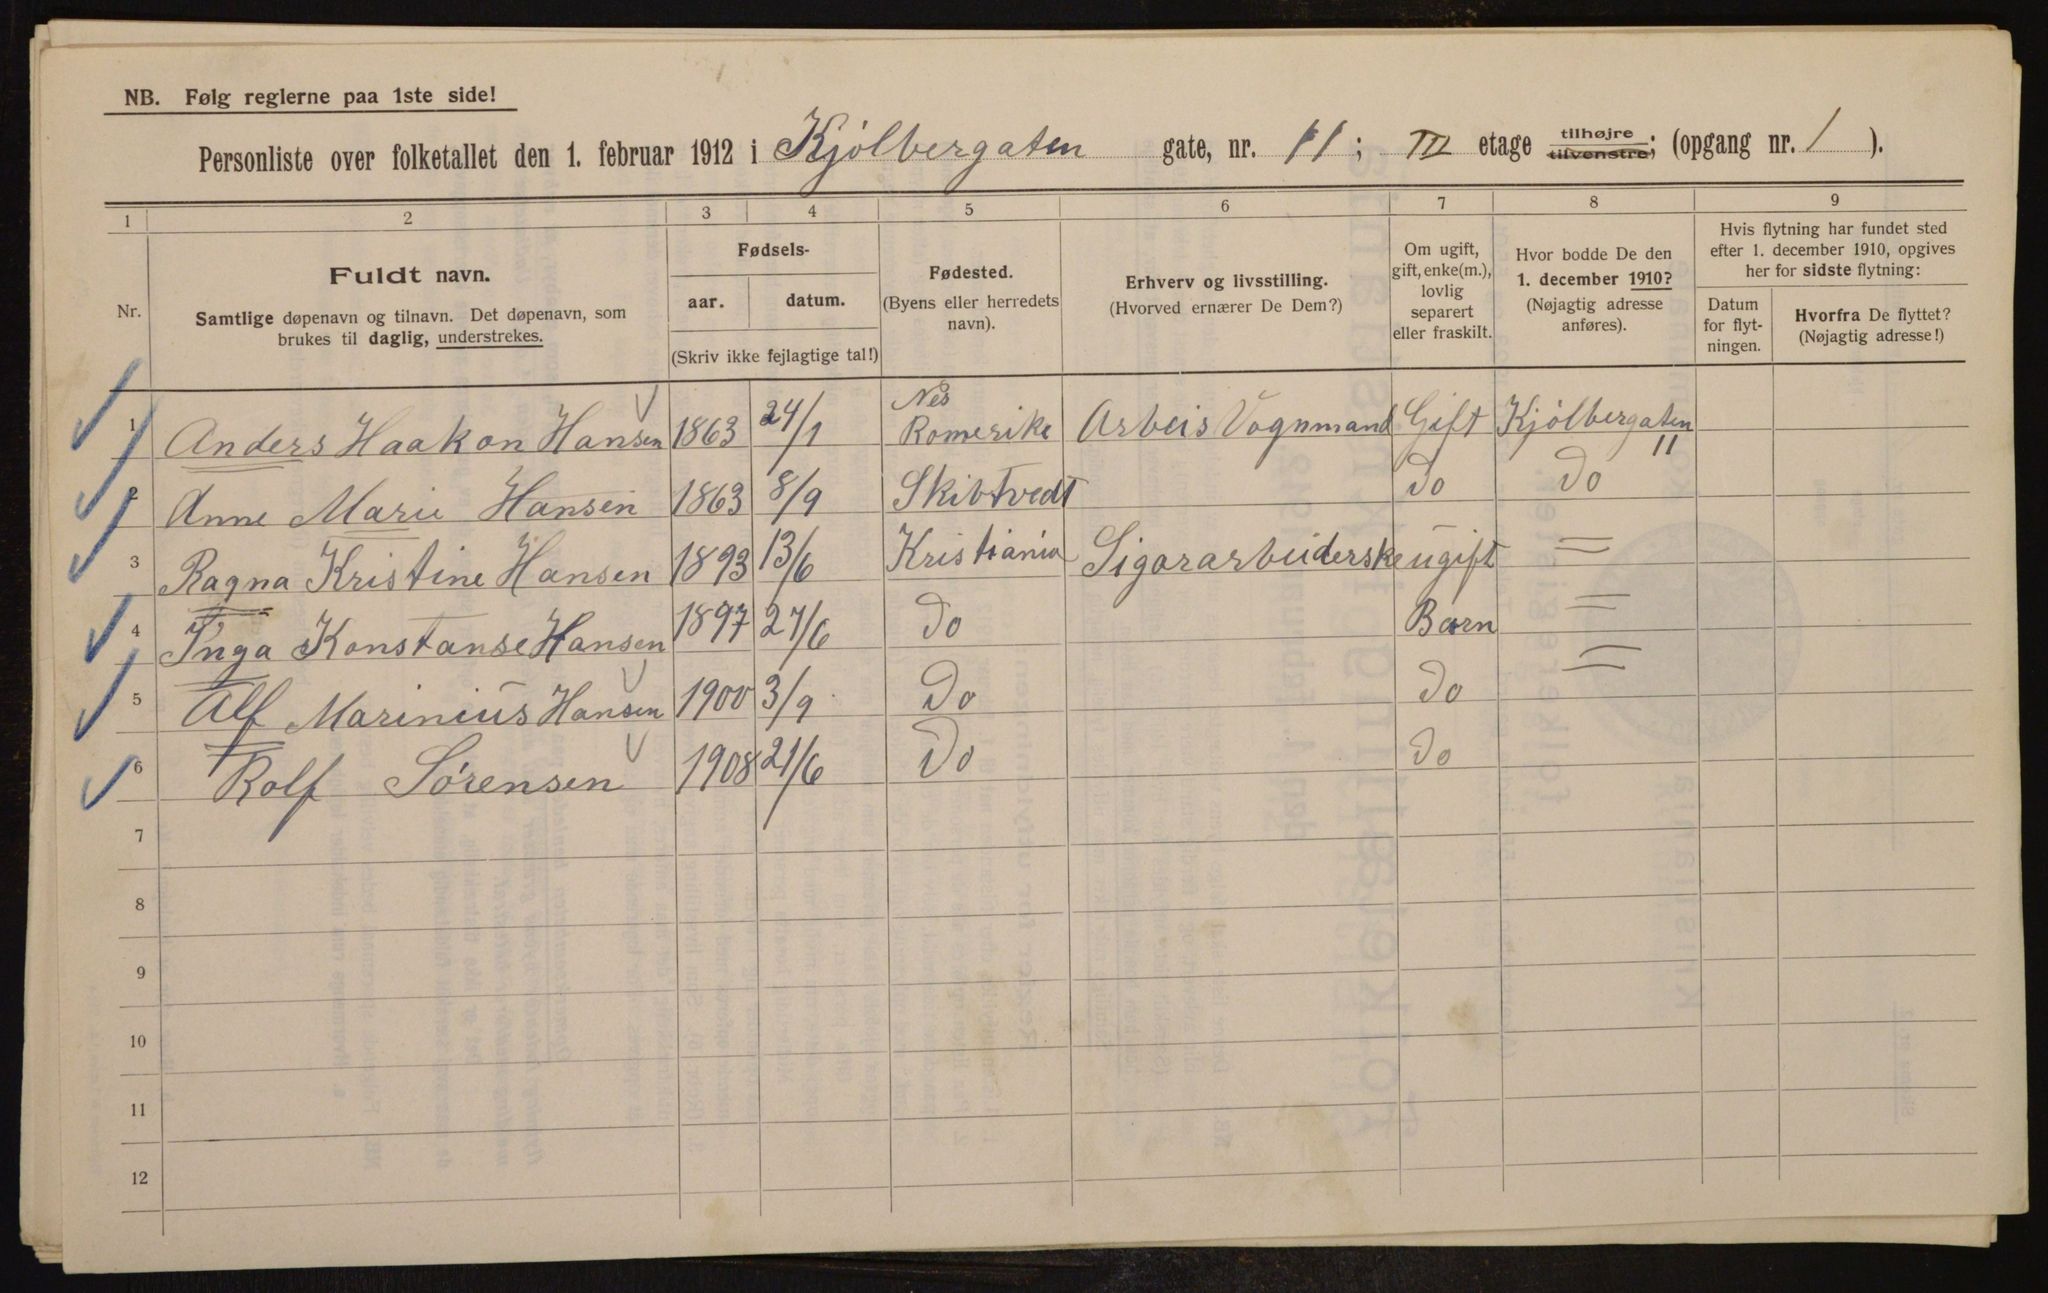 NB. Følg reglerne paa 1ste side!
Personliste over folketallet den 1. februar 1912 i Kjölbergaten gate, nr. 11; III etage tilhøjre tilvenstre; (opgang nr. 1 ).
1 2 3 4 5 6 7 8 9
Nr.
Fuldt navn.
Samtlige døpenavn og tilnavn. Det døpenavn, som
brukes til daglig, understrekes.
Fødsels-
aar. datum.
(Skriv ikke fejlagtige tal!)
Fødested.
(Byens eller herredets
navn).
Erhverv og livsstilling.
(Hvorved ernærer De Dem?)
Om ugift,
gift, enke(m.),
lovlig
separert
eller fraskilt.
Hvor bodde De den
1. december 1910?
(Nøjagtig adresse
anføres).
Hvis flytning har fundet sted
efter 1. december 1910, opgives
her for sidste flytning:
Datum
for flyt-
ningen.
Hvorfra De flyttet?
(Nøjagtig adresse!)
1 Anders Haakon Hansen 1863 24/1 Nes Romerike Arbeis Vognmand Gift Kjölbergaten 11
2 Anne Marie Hansen 1863 8/9 Skibtvedt Do Do
3 Ragna Kristine Hansen 1893 13/6 Kristiania Sigararbeiderske ugift =
4 Inga Konstanse Hansen 1897 27/6 Do Barn =
5 Alf Marinius Hansen 1900 3/9 Do Do =
6 Rolf Sörensen 1908 21/6 Do Do
7
8
9
10
11
12